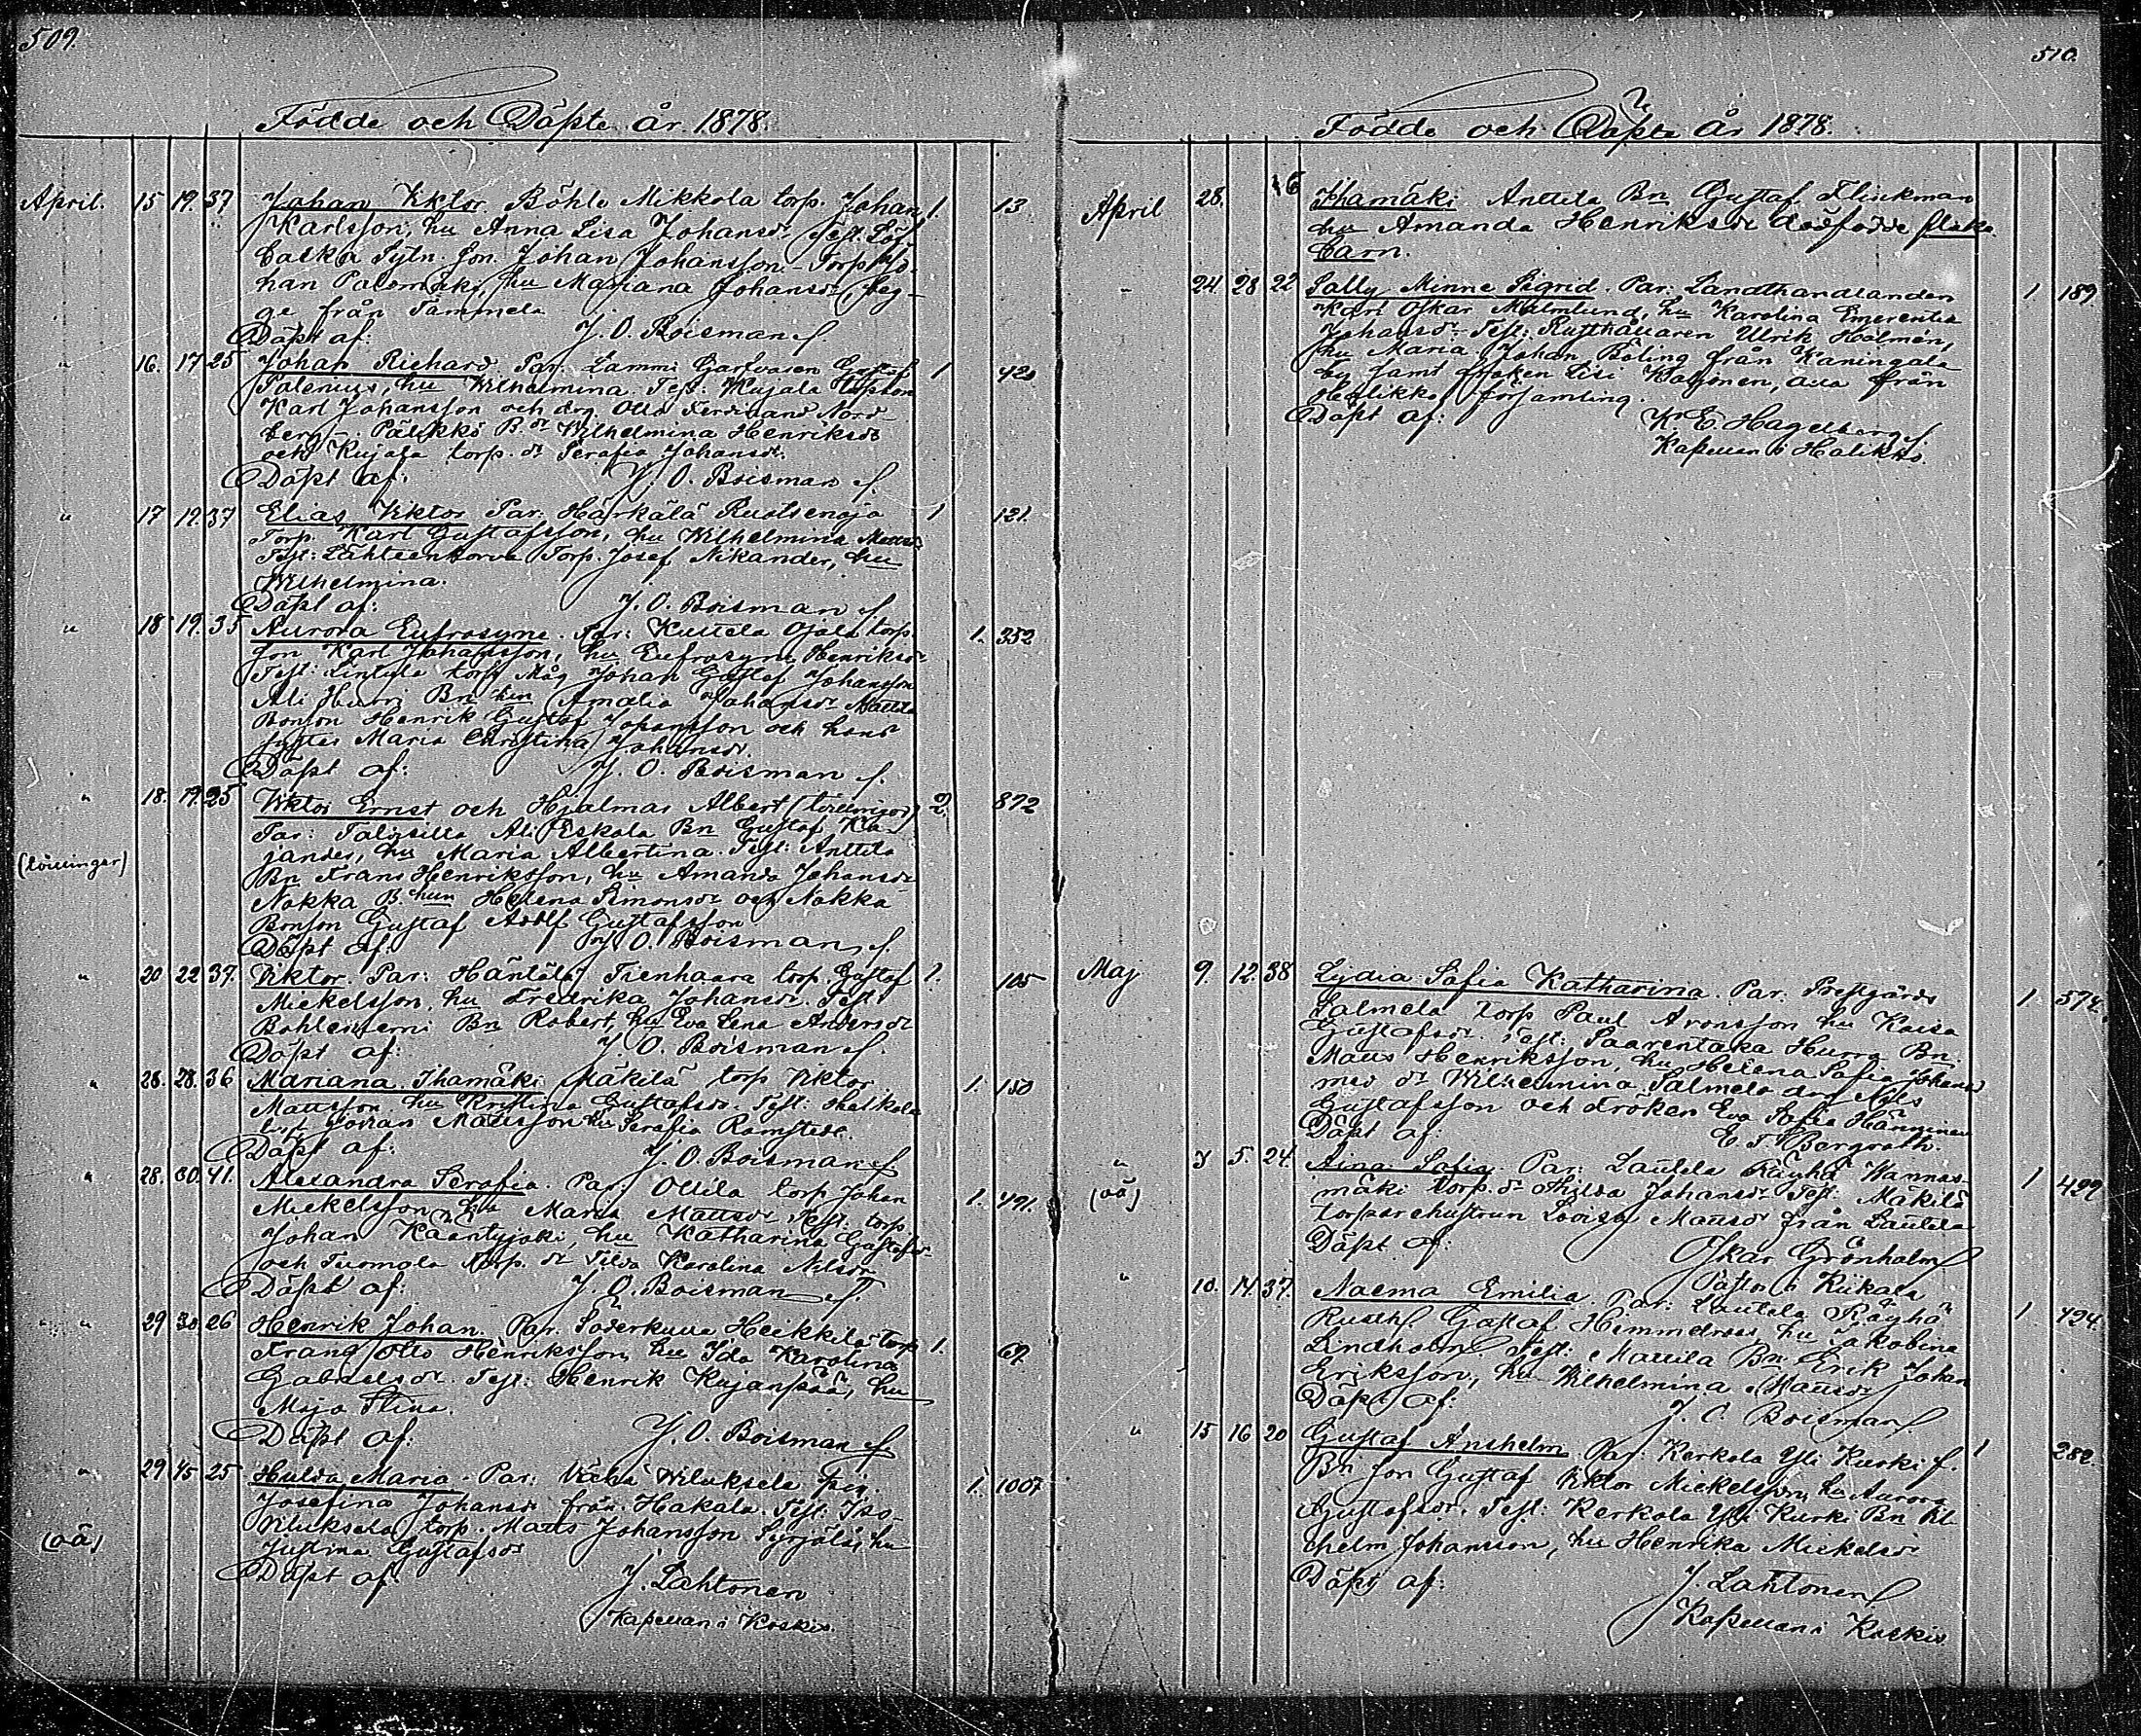 509.
Födde och Döpte år 1878.
April. 15 19. 37 Johan Viktor. Böhle Mikkola torp. Johan 1. 13
Karlsson, hu Anna Lisa Johansdr Test. Löf-
backa Sytn. son. Johan Johansson. - Torp Jo-
han Palomäki, hu Mariana Johansdr, beg-
ge från Tammela
Döpt af: J. O. Boisman
" 16. 17 25 Johan Richard. Par. Lammi Garfvaren Gustaf 1 420
Palenius, hu Wilhelmina. Test: Kujala torpson
Karl Johansson och drg. Otto Ferdinand Nord-
berg - Pälikkö B. dr Wilhelmina Henriksdr
och Kujala torp. dr Serafia Johansdr.
Döpt af: J. O. Boisman
" 17 19. 37 Elias Viktor Par: Härkälä Ruotsenoja 1 121.
Torp. Karl Gustafsson, hu Wilhelmina Mattsdr
Test: Lähteenkorva Torp. Josef Nikander, hu
Wilhelmina.
Döpt af: J. O. Boisman
" 18 19. 35 Aurora Eufrosyne. Par: Kuttela Ojala torp. 1. 352
son Karl Johansson, hu Eufrosyne Henriksdr
Test: Lintula torp. Måg Johan Gustaf Johansson
Ali Hurri Bn hun Amalia Johansdr Mattila
Bonson Henrik Gustaf Johansson och hans
syster Maria Christina Johansdr.
Döpt af: J. O. Boisman
" 18. 19. 25 Viktor Ernst och Hjalmar Albert (tvillingar) 2. 872
(tvillingar) Par: Talosilta Ali Eskola Bn Gustaf Ka-
jander, hu Maria Albertina. Test: Anttila
Bn Frans Henriksson, hu Amanda Johansdr
Nokka B. hun Helena Simonsdr och Nokka
Bonson Gustaf Adolf Gustafsson
Döpt af: J. O. Boisman
" 20 22 37. Viktor. Par: Häntälä Tienhaara torp. Gustaf 1. 105
Mickelsson, hu Fredrika Johansdr. Test:
Bn Robert, hu Eva Lena Andersdr
Döpt af: J. O. Boisman
" 28. 28. 36 Mariana. Ihamäki Mäkilä torp Viktor 1. 150
Mattsson, hu Kristina Gustafsdr. Test:
Johan Mattsson hu Serafia Ramstedt.
Döpt af: J. O. Boisman
" 28. 30. 41. Alexandra Serafia. Par. Ollila torp Johan 1. 491.
Mickelsson, hu Maria Mattsdr Test: torp.
Johan Kääntyjoki, hu Katharina Gustafsdr
och Tuomola torp. dr Tilda Karolina Nilsdr
Döpt af: J. O. Boisman
" 29 30. 26 Henrik Johan. Par. Söderkulla Heikkilä torp 1. 69.
Frans Otto Henriksson, hu Ida Karolina
Gabrielsdr. Test: Henrik Kujanpää, hu
Maja Stina.
Döpt af: J. O. Boisman
" 29 15 25 Hulda Maria. Par: Vähä Wiluksela pig. 1. 1007
(oä) Josefina Johansdr från Hakala. Test: Iso-
Wiluksela torp. Matts Johansson Syrjälä, hu
Justina Gustafsdr
Döpt af: J. Lahtonen
Kapellan i Koskis.
510.
Födde och Döpte år 1878.
April 28. Ihamäki Anttila Bn Gustaf Flinkman
hu Amanda Henriksdr dödfödde flicke
barn.
" 24. 28 22 Sally Minne Sigrid. Par: Landthandlanden 1 189
Karl Oskar Malmlund, hu Karolina Emerentia
Johansdr Test: Rusthållaren Ulrik Holmén,
hu Maria, Johan Böling från Kaningala
by samt fröken Lisi Kaljonen, alla från
Halikko församling.
Döpt af: K. E. Hagelberg
Kapellan i Halikko.
Maj 9. 12. 38 Lydia Sofia Katharina. Par: Prestgårds 1 574.
Salmela torp Paul Aronsson hu Kaisa
Gustafsdr. Test: Saarentaka Hurra Bn.
Matts Henriksson, hu Helena Sofia Johansd
med dr Wilhelmina Salmela drg Nils
Gustafsson och Fröken Eva Sofia Hänninen
Döpt af: E. F. Bergroth.
" 3 5. 24. Aina Sofia. Par: Lautela Räyhä Wannas- 1 499
(oä) mäki torp. dr Hilda Johansdr Test: Mäkilä
torpare hustrun Lovisa Mattsdr från Lautela
Döpt af: Oskar Grönholm
Pastor i Kiikala
" 10. 14. 37. Naema Emilia. Par: Lautela Räyhä 1 494.
Rusth Gustaf Himmelroos hu Jakobina
Lindholm. Test: Mattila Bn. Erik Johan
Eriksson, hu Wilhelmina Mattsdr
Döpt af: J. O. Boisman
" 15 16 20 Gustaf Anshelm. Par: Kerkola Yli Kurki f. 1 282.
Bn son Gustaf Viktor Mickelsson, hu Aurora
Gustafsdr. Test: Kerkola Yli Kurki Bn Vil-
helm Johansson, hu Henrika Mickelsdr
Döpt af: J. Lahtonen
Kapellan i Koskis